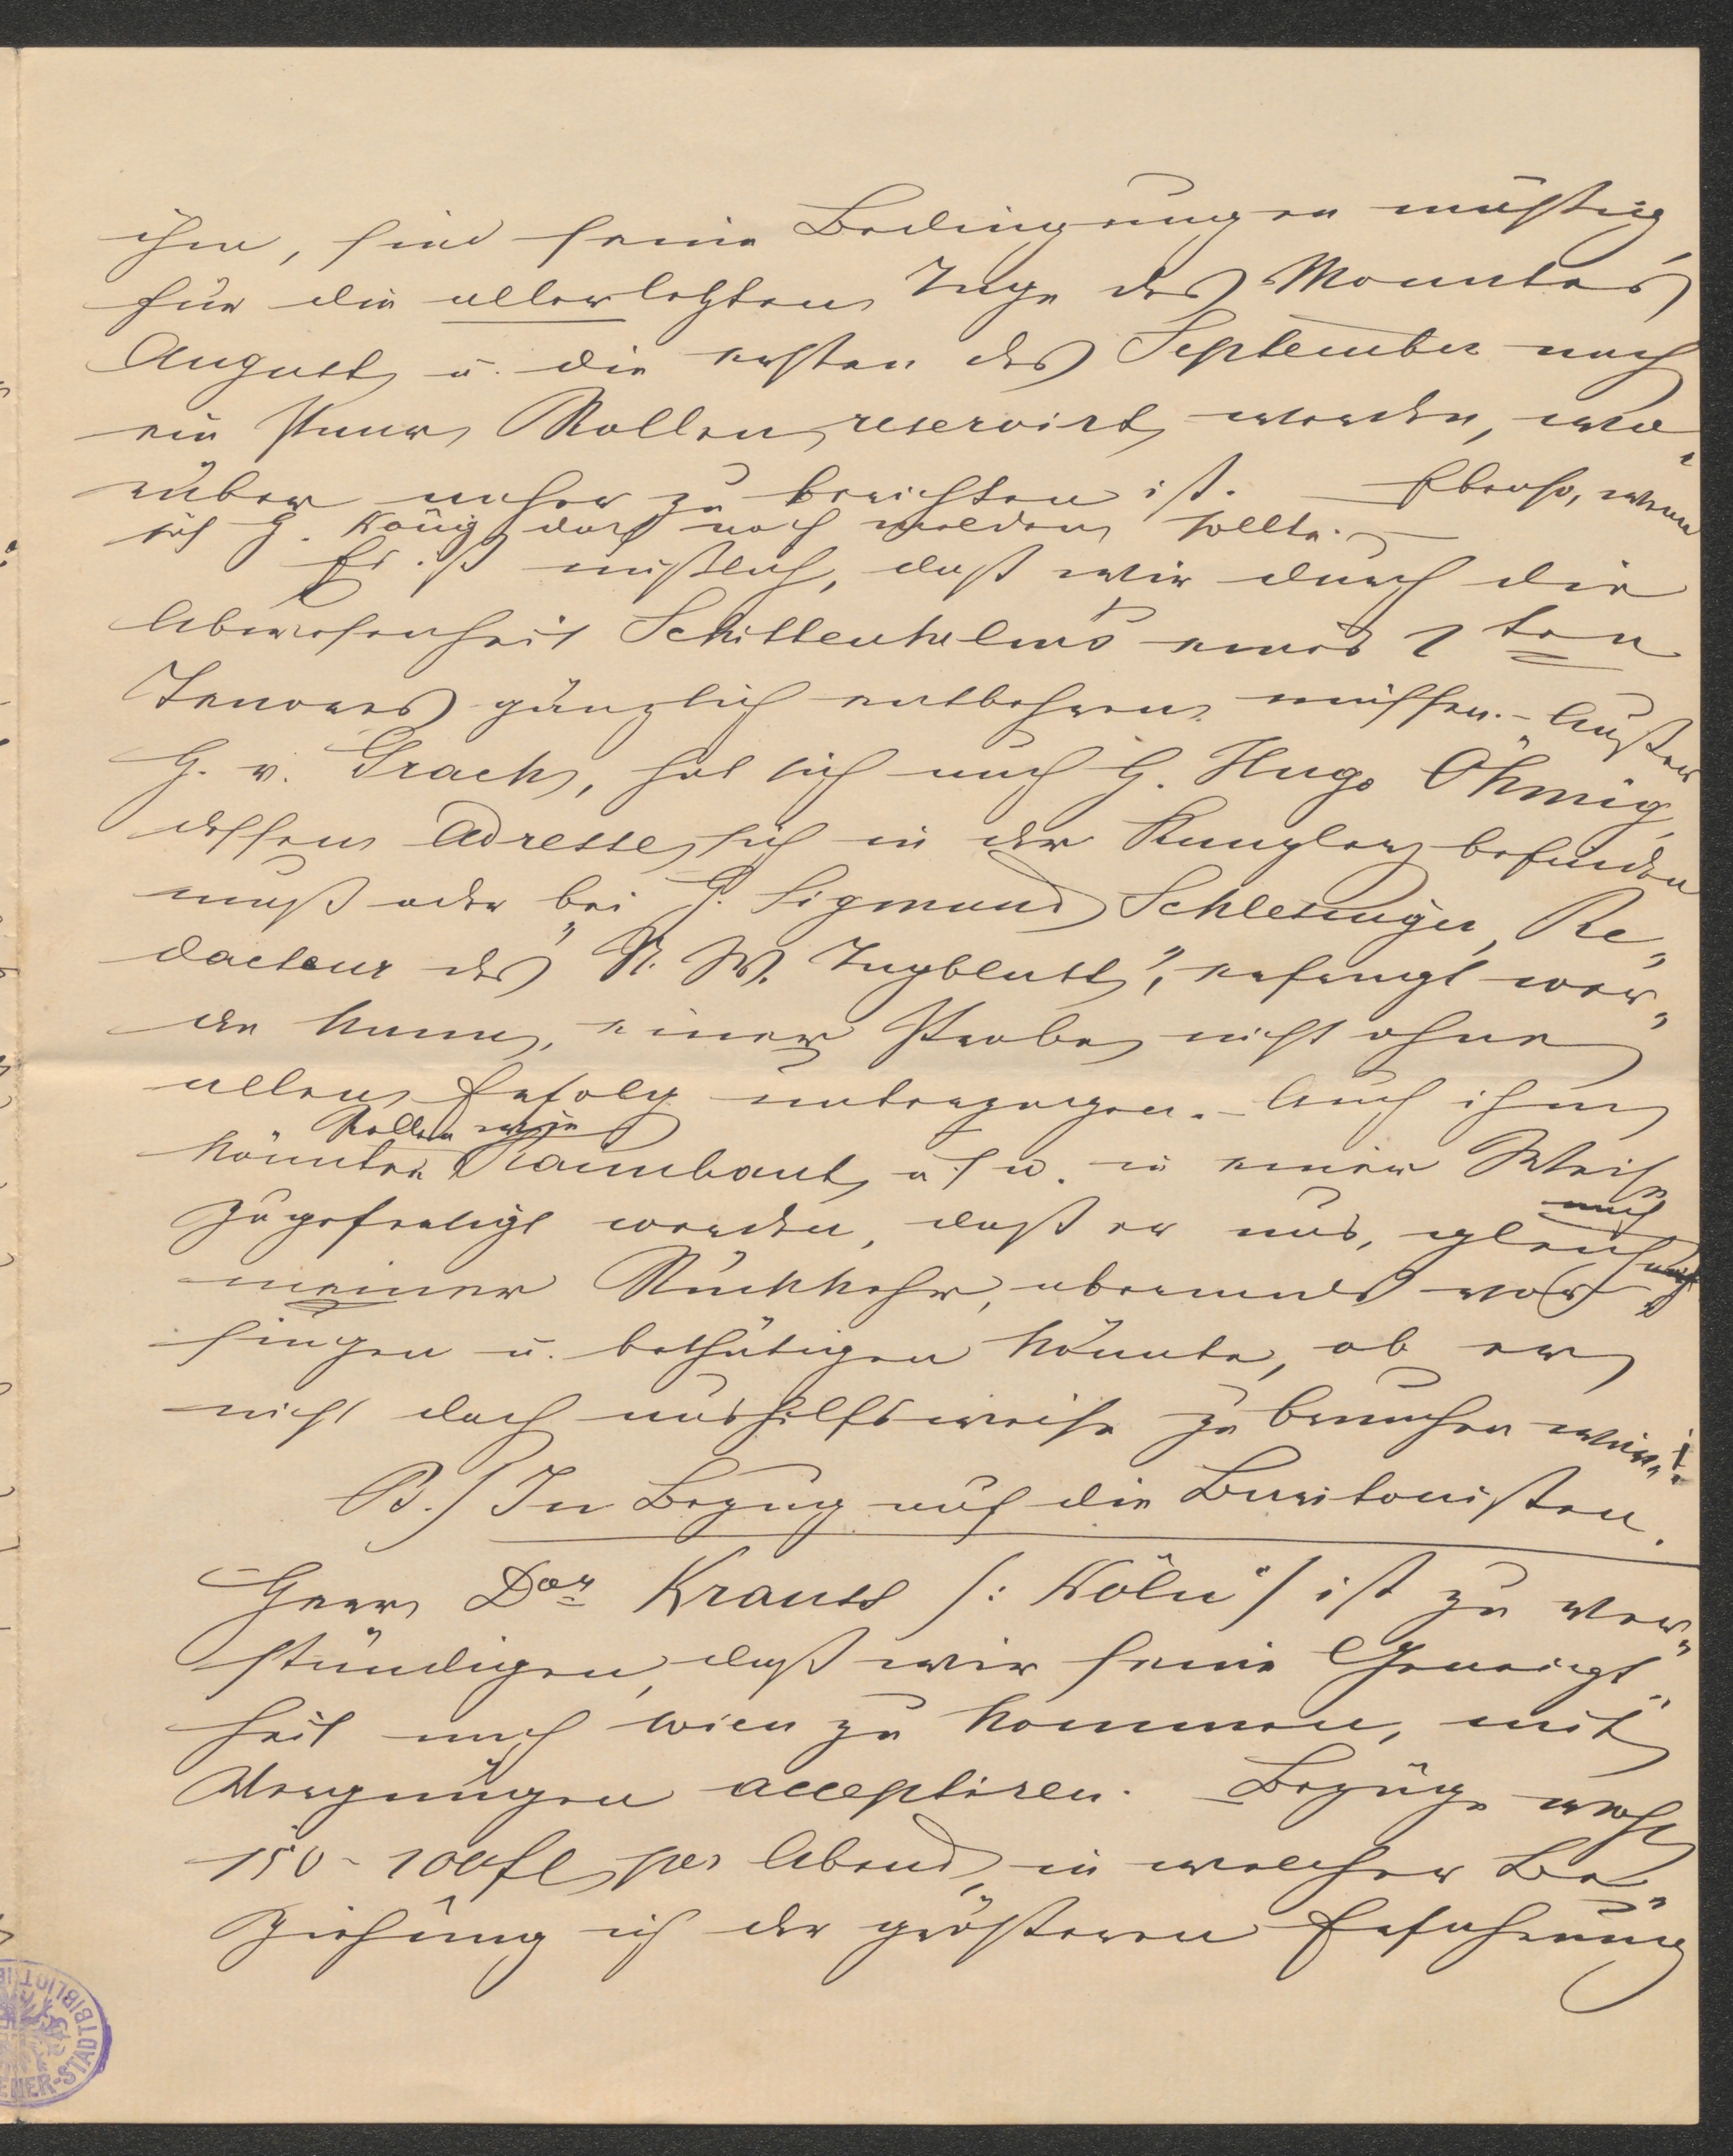 ihm, sind seine Bedingungen mäßig,
für die allerletzten Tage des Monates
August u. die ersten des September noch
ein Paar Rollen reservirt werden, wo-
rüber näher zu berichten ist. Ebenso, wenn
sich H. König dort noch melden sollte. –
Es ist mißlich, daß wir durch die
Abwesenheit Schittenhelms eines 1ten
Tenores gänzlich entbehren müssen. – Außer
H. v. Grach, hat sich auch H. Hugo Öhmig,
dessen Adresse sich in der Kanzley befinden
muß oder bei H. Sigmund Schlesinger, Re-
dacteur des „N. W. Tagblatt“, erfragt wer-
den kann, einer Probe nicht ohne
allen Erfolg unterzogen. – Auch ihm
könnten Rollen wie Raimbaut u.s.w. in einer Weise
zugefertigt werden, daß er uns, gleich nach
meiner Rückkehr, abermals vor-
singen u. bethätigen könnte, ob er
nicht doch aushilfsweise zu brauchen wäre!
B./ In Bezug auf die Baritonisten.
Herr Dor Krauss /: Köln :/ ist zu ver-
ständigen, daß wir seine Geneigt-
heit nach Wien zu kommen, mit
Vergnügen acceptiren. Bezüge wohl
150 - 100 fl per Abend, in welcher Be-
ziehung ich der größeren Erfahrung
WIENER-STADTBIBLIOTHEK